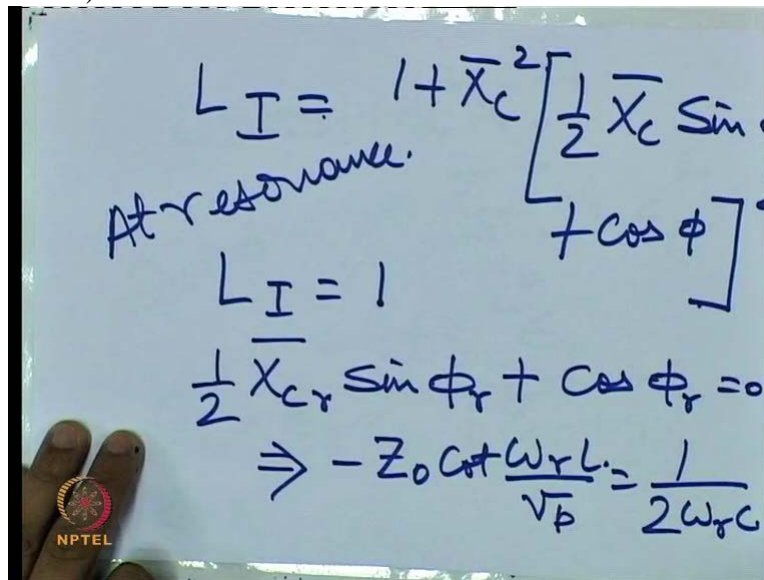 L_I = 1 + X̄_C² [ ½ X̄_C Sin
+ cos φ ]
At resonance.
L_I = 1
½ X̄_Cr Sin φ_r + Cos φ_r = 0
⇒ - Z_0 Cot ω_r L / √p = 1 / 2ω_r C
NPTEL